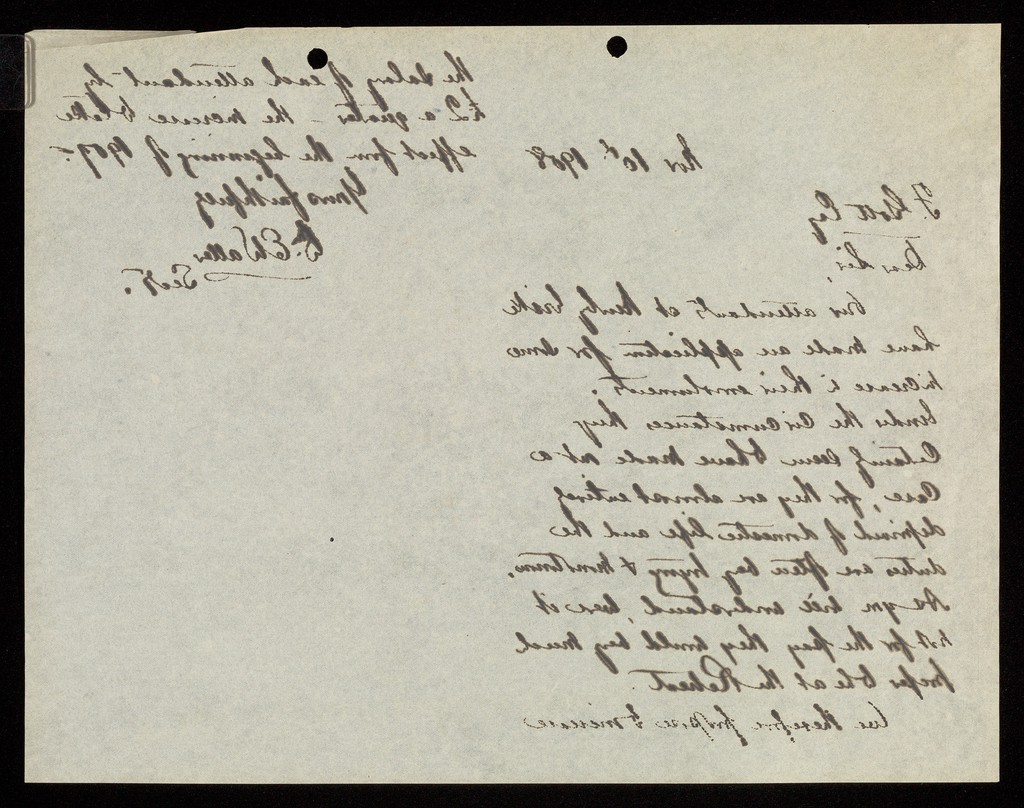 Nov 10th 1908
F. Scott Esq
Dear Sir,
Our attendants at Kirkby
have made an application for some
increase in their emoluments.
Under the circumstances they
certainly seem to have made out a
case, for they are almost entirely
deprived of domestic life and the
duties are often very trying & monotonous.
As you will understand, were it
not for the pay they would very much
prefer to be at the Retreat.
We therefore propose to increase
the salary of each attendant by
£2 a quarter – the increase to take
effect from the beginning of 1909.
Yours faithfully
E. Waller
Secy.